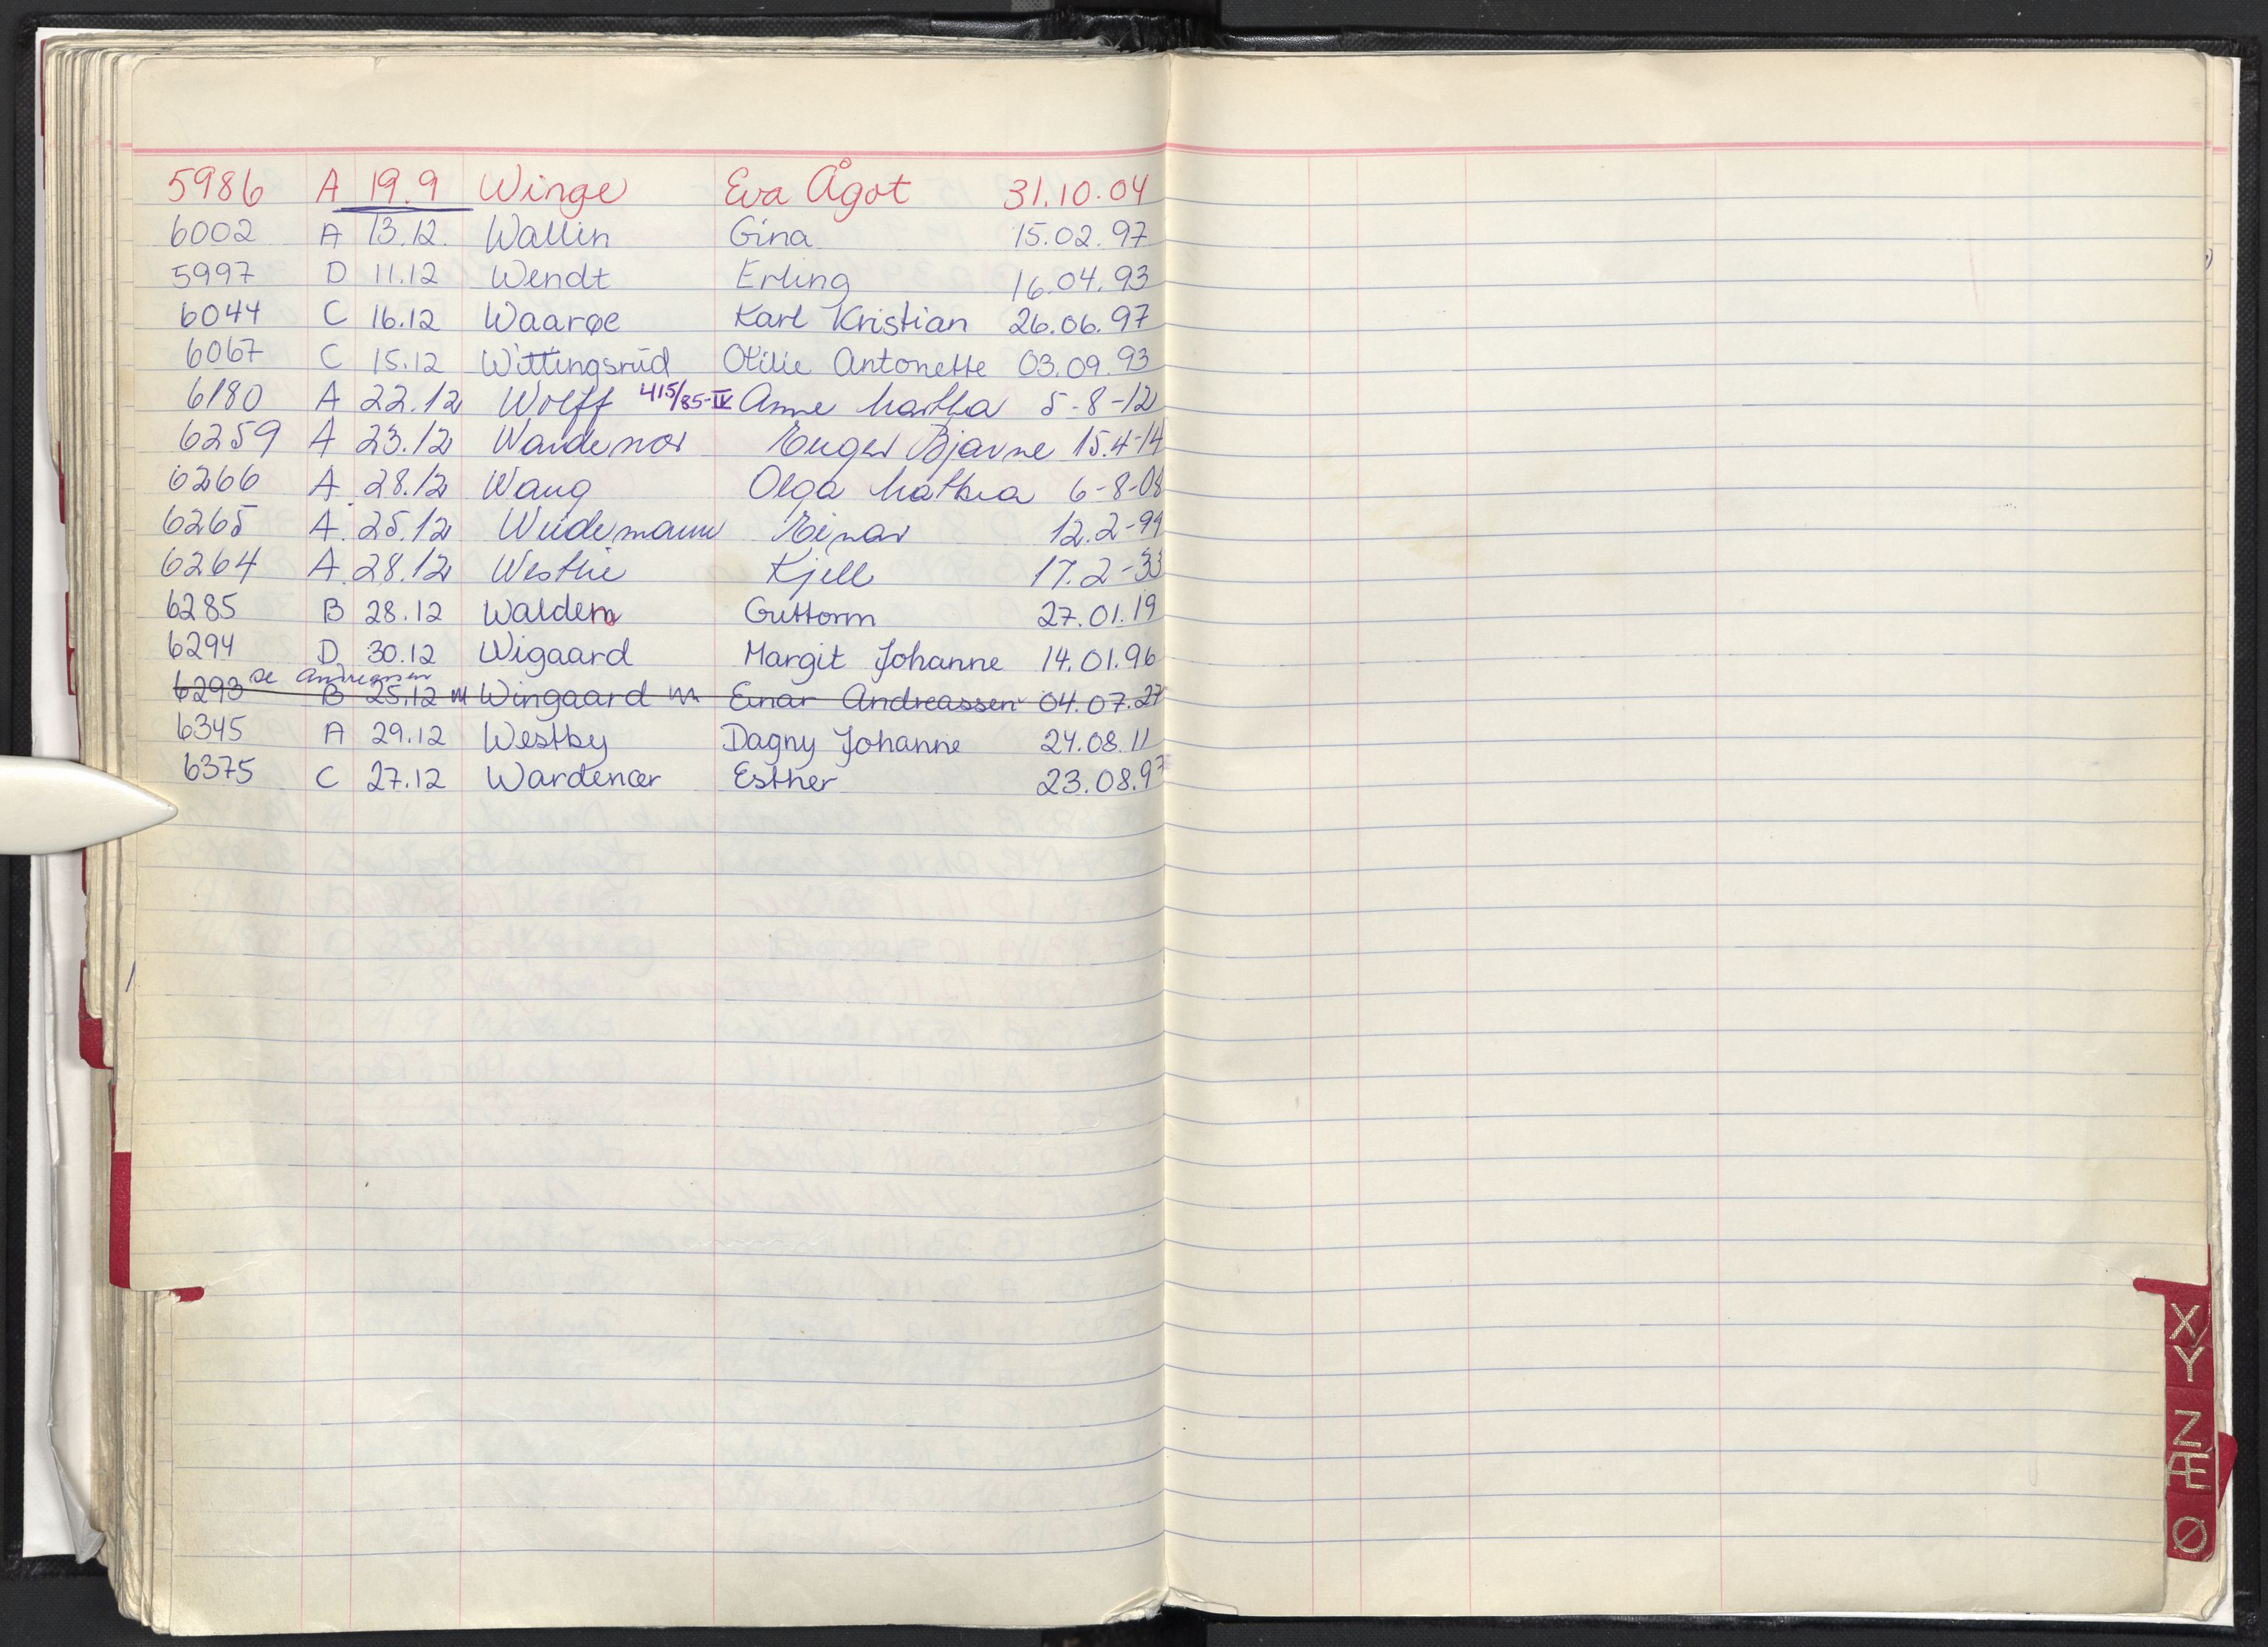 5986 A 19.9 Winge Eva Ågot 31.10.04
6002 A 13.12. Wallin Gina 15.02.97
5997 D 11.12 Wendt Erling 16.04.93
6044 C 16.12 Waarøe Karl Kristian 26.06.97
6067 C 15.12 Wittingsrud Otilie Antonette 03.09.93
6180 A 22.12 Wolff 415/85-IV Anne Martha 5-8-12
6259 A 23.12 Bjarne 15.4-14
6266 A 28.12 Wang Olga Mathea 6-8-08
6265 A. 25.12 Weidemann Einar 12.2-99
6264 A. 28.12 Westlie Kjell 17.2-33
6285 B 28.12 Waldem Guttorm 27.01.19
6294 D 30.12 Wigaard Margit Johanne 14.01.96
se Andreassen
6293 B 25.12 Wingaard Einar Andreassen 04.07.27
6345 A 29.12 Westby Dagny Johanne 24.08.11
6375 C 27.12 Wardenær Esther 23.08.97
X/Y
Z
Æ
Ø